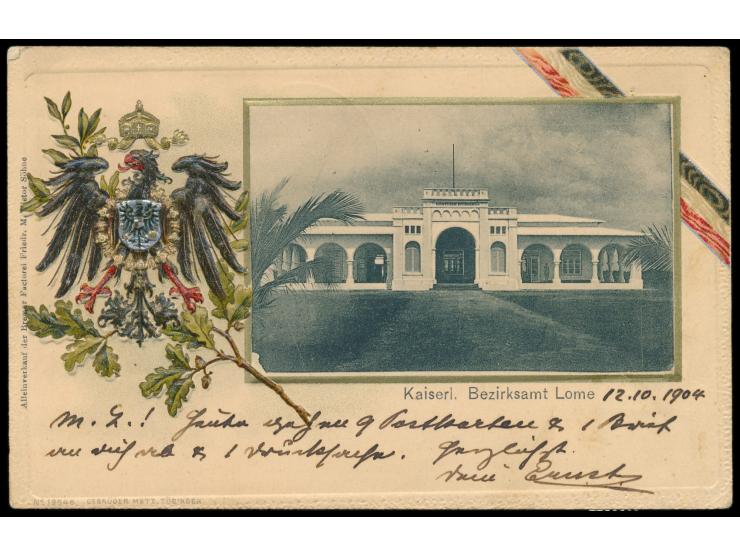 Alleinverkauf der Bremer Factorei Friedr. M. Vietor Söhne
Kaiserl. Bezirksamt Lome 12.10.1904
M. L.! Heute gehen 9 Postkarten & 1 Brief
an dich ab & 1 Drucksache. Herzlichst
Dein Ernst
No. 19546 GEBRÜDER METZ, TÜBINGEN